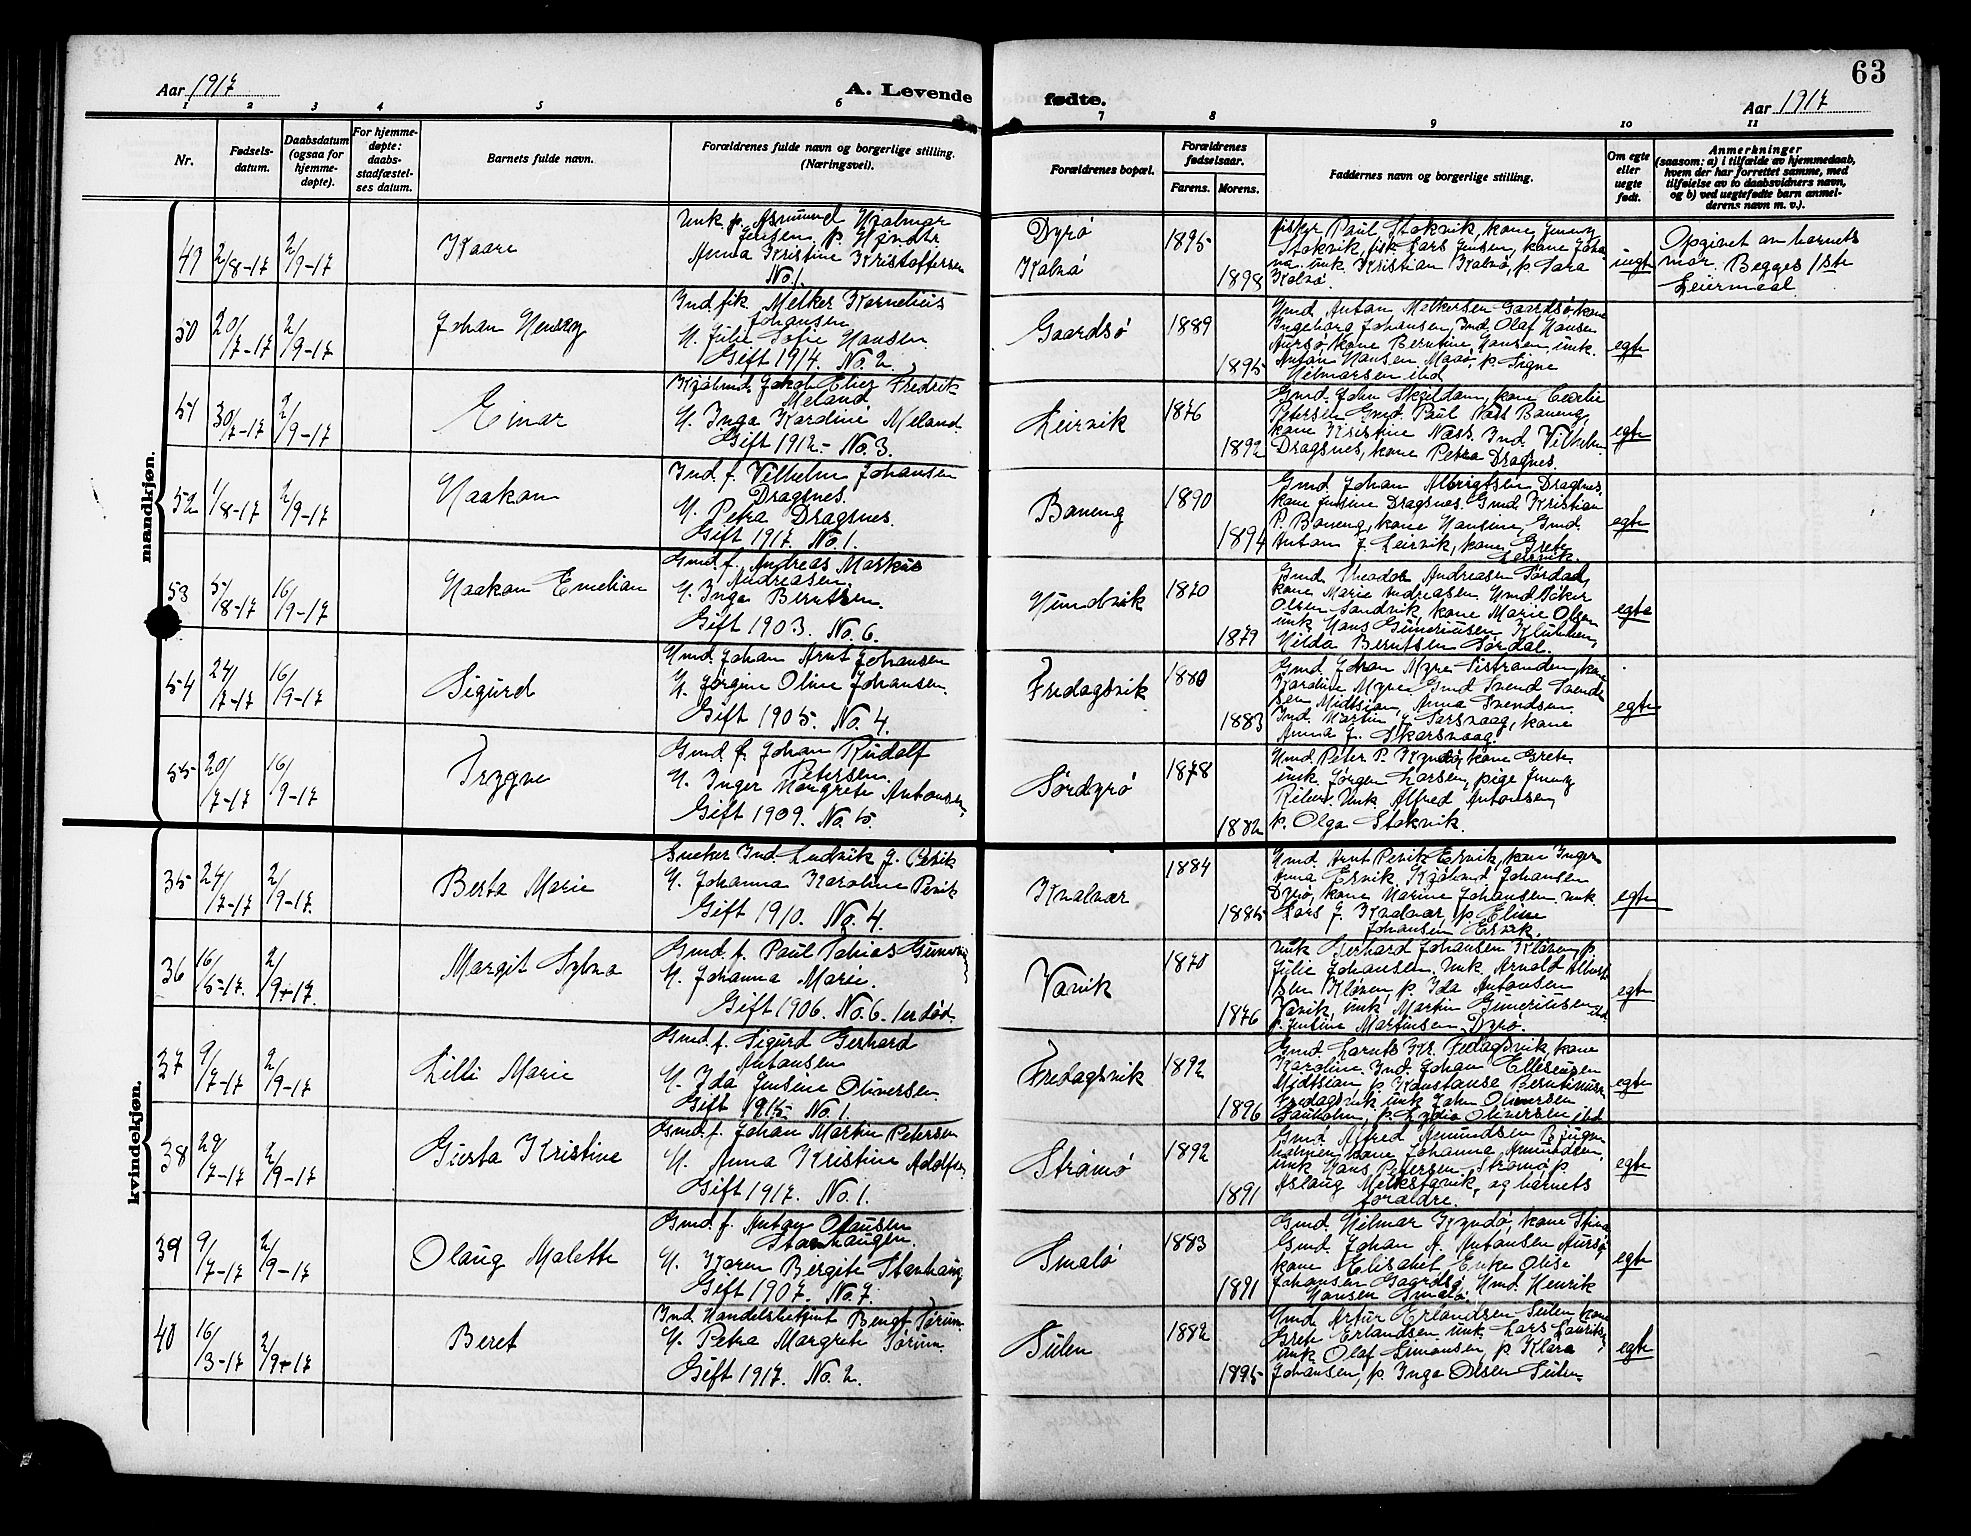 63
Aar 1917
A. Levende fødte.
Aar 1917
1 2 3 4 5 6 7 8 9 10 11
Nr.
Fødsels-
datum.
Daabsdatum
(ogsaa for
hjemme-
døpte).
For hjemme-
døpte:
daabs-
stadfæstel-
ses datum.
Barnets fulde navn.
Forældrenes fulde navn og borgerlige stilling.
(Næringsvei).
Forældrenes bopæl.
Forældrenes
fødselsaar.
Farens. Morens.
Faddernes navn og borgerlige stilling.
Om egte
eller
uegte
født.
Anmerkninger
(saasom: a) i tilfælde av hjemmedaab,
hvem der har forrettet samme, med
tilføielse av to daabsvidners navn,
og b) ved uegtefødte barn anmel-
derens navn m. v.).
mandkjøn.
49 2/8-17 2/9-17 Kaare
Umk. f. Asmund Hjalmar
Jensen, p.
Anna Kristine Kristoffersen
No. 1.
Dyrø
Kalvø
1895
1898
fisker Paul Stokvik, kone Jenny
Stokvik, fisk. Lars Jensen, kone Joha
na, umk. Kristian Kalvø, p. Sara
Kalvø.
uegte
Opgivet av barnets
mor. Begges 1ste
Leiermaal
50 20/7-17 2/9-17 Johan Henry
Ind. fisk. Melker Kornelius
Johansen
H. Julie Sofie Hansen
Gift 1914. No. 2.
Gaardsø
1889
1895
Gmd. Antan Melkersen Gaardsø, kone
Ingeborg Johansen, Ind. Olaf Hansen
Aursø, kone Berntine Hansen, umk.
Antan Hansen Maaø, p. Signe
Hilmarsen ibd
egte
51 30/7-17 2/9-17 Einar
Kjøbmd. Jakob Eliez Fredrik
Meland
H. Inga Kardine Meland.
Gift 1912 - No. 3.
Leirvik
1876
1892
Gmd. John Skjeldam, kone Cecilie
Petersen Gmd. Paul Næss Boneng,
kone Kristine Næss. Ind. Vilhelm
Dragsnes, kone Petra Dragsnes.
egte
52 1/8-17 2/9-17 Haakon
Ind. f. Vilhelm Johansen
Dragsnes.
H. Petra Dragsnes.
Gift 1917. No. 1.
Boneng
1890
1894
Gmd. Johan Albrigtsen Dragsnes,
kone Jensine Dragsnes. Gmd. Kristian
P. Boneng, kone Hansine, Gmd.
Antan J. Leirvik, kone Grete
Leirvik.
egte
53 5/8-17 16/9-17 Haakon Emelian
Gmd. f. Andreas Markus
Andreasen.
H. Inga Berntsen.
Gift 1903. No. 6.
Hundvik
1870
1879
Gmd. Theodor Andreasen Sørdal,
kone Marie Andreasen Gmd.
Olsen Sandvik, kone Marie Olsen
umk. Hans Gunerinsen Klubben,
Hilda Berntsen Sørdal.
egte
54 24/7-17 16/9-17 Sigurd
Gmd. Johan Arnt Johansen
H. Jørgine Oline Johansen.
Gift 1905. No. 4.
Fredagsvik
1880
1883
Gmd. Johan Myre Sistranden, kone
Kardine Myre Gmd Svend Svend
sen Midtsian, Anna Svendsen.
Ind. Martin J. Sarsvaag, kone
Anna J. Skarsvaag.
egte
55 20/7-17 16/9-17 Trygve
Gmd. f. Johan Rudolf
Petersen.
H. Inger Margrete Antonsen,
Gift 1909. No. 5.
Sørdyrø
1878
1882
Gmd Peter P. Kyndø, kone Grete
umk. Jørgen Larsen, pige Jenny
Umk. Alfred Antonsen,
p. Olga Stokvik.
kvindekjøn.
35 24/7-17 2/9-17. Berta Marie
Snekker Ind. Ludvik J. Pevik
H. Johanna Karoline Pevik
Gift 1910. No. 4.
Kvalvær
1884
1885
Gmd. Arnt Pevik Ervik, kone Inger
Anna Ervik Kjøbmd Johansen
Dyrø, kone Marine Johansen umk.
Lars J. Kvalvær, p. Eline
Johansen Ervik.
egte
36 16/5-17. 2/9-17. Margit Sylva
Gmd. f. Paul Tobias
H. Johanna Marie.
Gift 1906. No. 6. 1er død.
Vavik
1870
1876
umk Gerhard Johansen Kløven, p.
Julie Johansen. Umk. Arnold Albert
sen Kløven p Ida Antonsen
Vavik, umk Martin Gunerinsen ibd.
p. Jensine Martinsen Dyrø.
egte
37 9/7-17 2/9-17 Lilli Marie
Gmd. f. Sigurd Gerhard
Antonsen
H. Ida Jensine Oliversen.
Gift 1915 No. 1.
Fredagsvik
1892
1896
Gmd. Kr. Fredagsvik, kone
Kardine. Ind. Johan Ellesengen
Midtsian p Konstanse Berntinusen
Fredagsvik umk John Oliversen
p. Lydia Oliversen ibd
egte
38 29/7-17 2/9-17 Gusta Kristine
Gmd. f. Johan Martin Petersen
H. Anna Kristine Adolfsen
Gift 1917. No. 1.
Strømø
1892
1891
Gmd. Alfred Amundsen Bjugn
holmen, kone Johanna Amundsen,
umk Hans Petersen Strømø p
Aslaug Melkstavik, og barnets
forældre.
egte
39 9/7-17 2/9-17 Olaug Malette
Gmd. f. Antan Olausen
Stenhaugen.
H. Karen Bergite Stenhaug
Gift 1907. No. 7.
Smalø
1883
1891
Gmd. Hilmar Kyndø, kone Stina
Gmd. Johan A. Antonsen Aursø,
kone Elisabet, Enke Olise
Johansen Gaardsø, Umd. Henrik
Hansen Smalø.
egte
40 16/3-17 2/9-17 Beret
Ind. Handelsbetjent Bengt Sørum
H. Petra Margrete Sørum.
Gift 1917. No. 2.
Sulen
1882
1895
Gmd Artur Erlandsen Sulen kone
Grete Erlandsen, umk. Lars Lauritsen,
umk Olaf Simonsen, p Klara
Johansen, p. Inga Olsen Sulen
egte